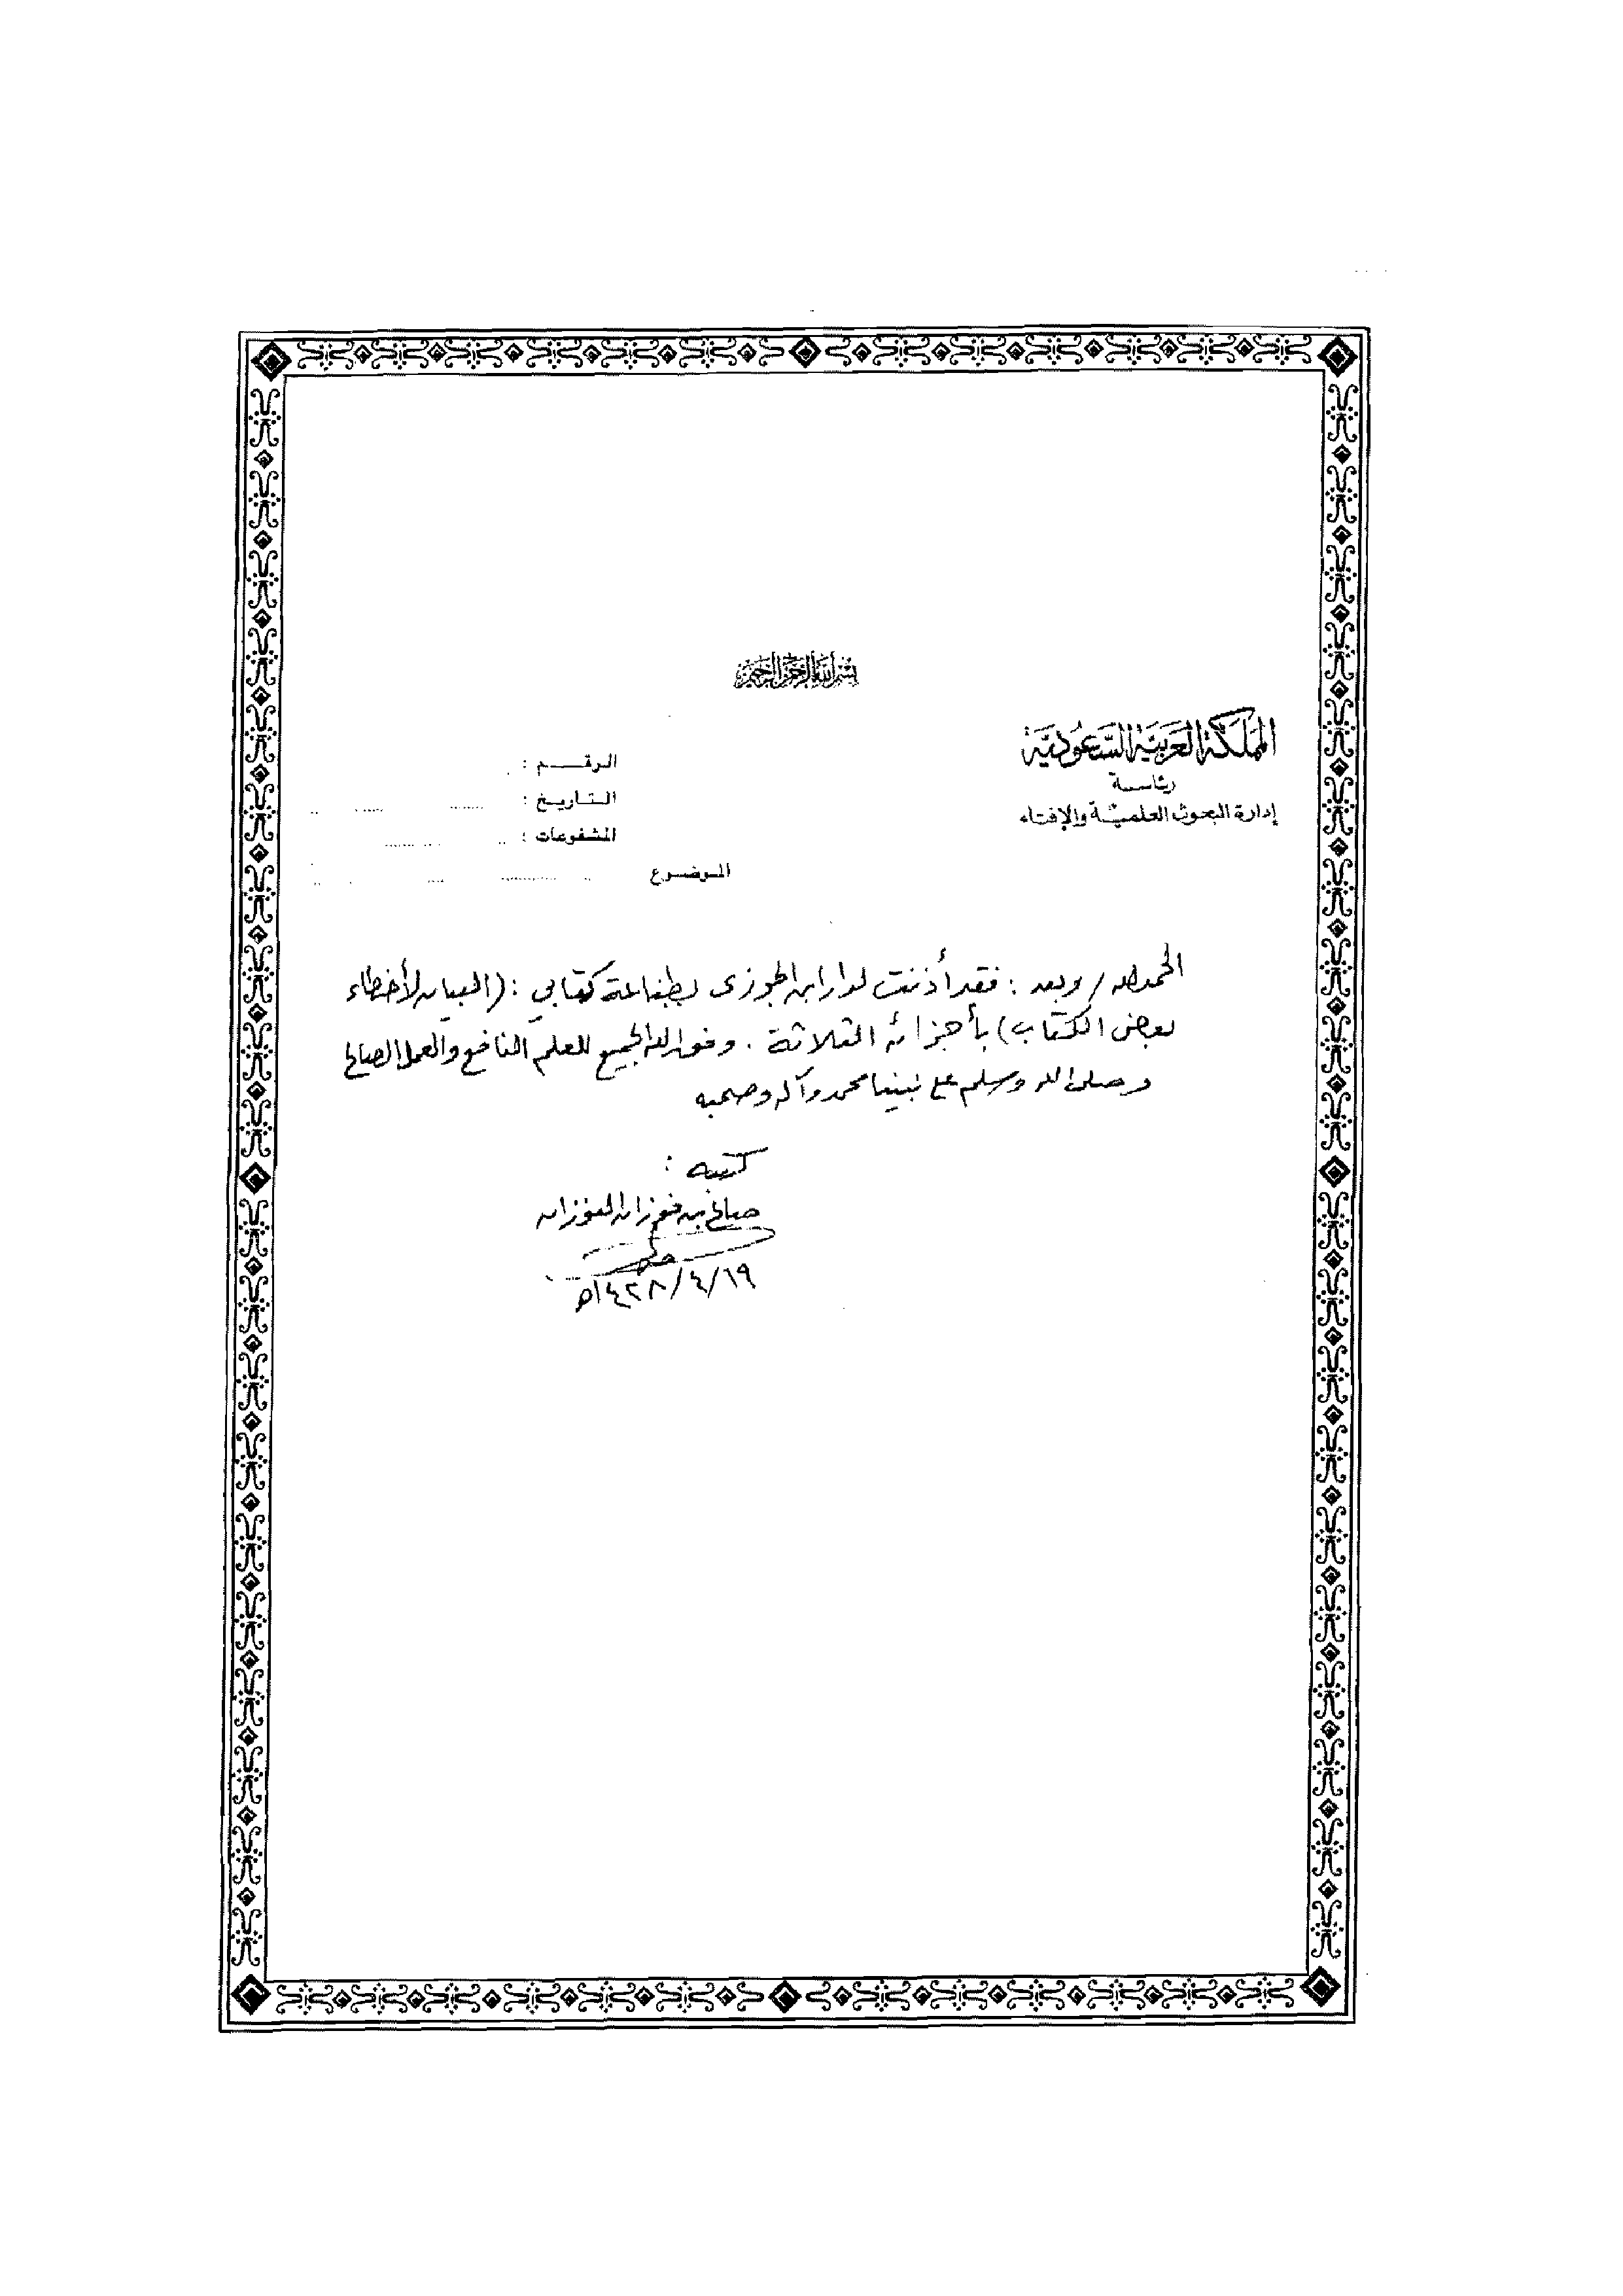 بسم الله الرحمن الرحيم
المملكة العربية السعودية
رئاسة
إدارة البحوث العلمية والإفتاء
الرقم :
التاريخ :
المشفوعات :
الموضوع
الحمد لله / وبعد : فقد أذنت لدار ابن الجوزي بطباعة كتابي : (البيان لأخطاء
بعض الكتاب) بأجزائه الثلاثة . وفق الله الجميع للعلم النافع والعمل الصالح
وصلى الله وسلم على نبينا محمد وآله وصحبه
كتبه :
صالح بن فوزان الفوزان
١٤٢٨/٤/١٩هـ